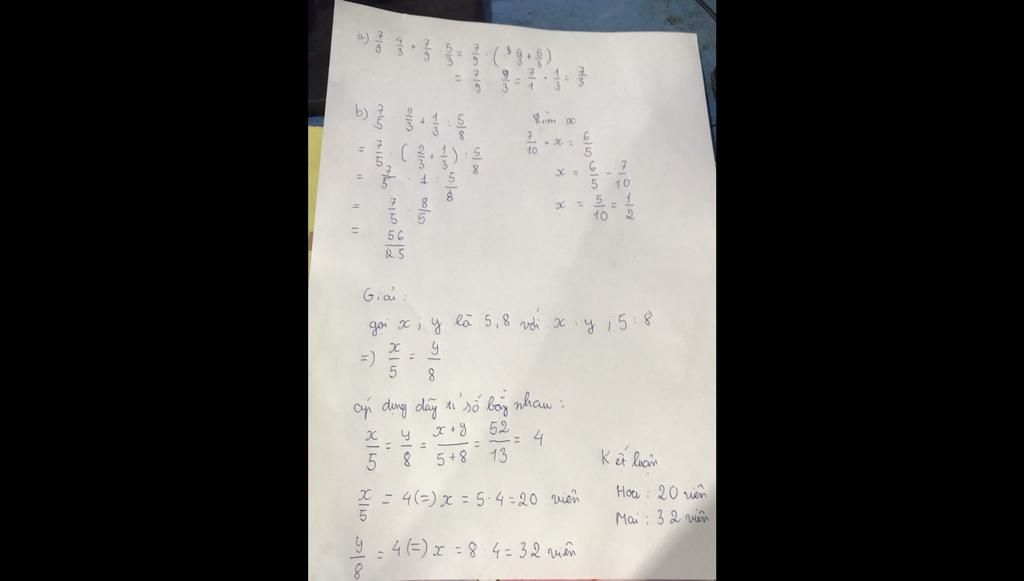 a) 7/9 · 4/3 + 7/9 · 5/3 = 7/9 · (4/3 + 5/3)
= 7/9 · 9/3 = 7/1 · 1/3 = 7/3
b) 7/5 · 2/3 + 1/3 : 5/8
= 7/5 · (2/3 + 1/3) : 5/8
= 7/5 · 1 : 5/8
= 7/5 · 8/5
= 56/25
Tìm x
7/10 + x = 6/5
x = 6/5 - 7/10
x = 5/10 = 1/2
Giải:
gọi x; y là 5,8 với x : y ; 5 : 8
=) x/5 = y/8
áp dụng dãy tỉ số bằng nhau:
x/5 = y/8 = x+y/5+8 = 52/13 = 4
x/5 = 4 (=) x = 5·4 = 20 viên
y/8 = 4 (=) x = 8·4 = 32 viên
Kết luận
Hoa: 20 viên
Mai: 32 viên